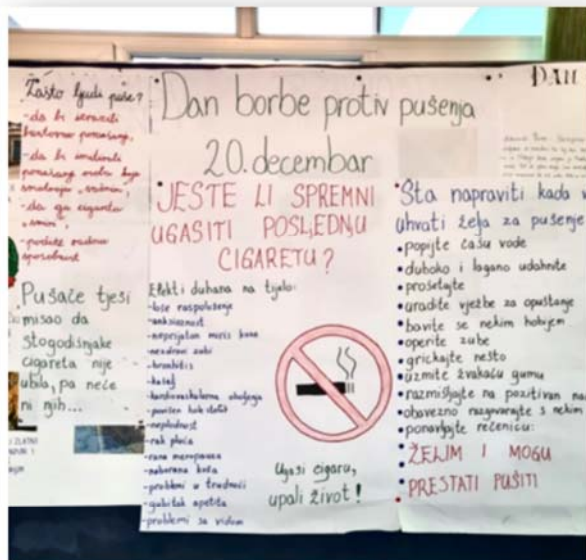 Zašto ljudi puše?
-da bi izrazili
buntovno ponašanje,
-da bi imitirali
ponašanje osoba koje
smatraju „važnim“,
-da ga cigareta
„smiri“,
-podiže radnu
sposobnost
Pušače tješi
misao da
stogodišnjake
cigareta nije
ubila, pa neće
ni njih...
Dan borbe protiv pušenja
20.decembar
JESTE LI SPREMNI
UGASITI POSLJEDNJU
CIGARETU?
Efekti duhana na tijelo:
-loše raspoloženje
-anksioznost
-neprijatan miris kose
-nezdravi zubi
-bronhitis
-kašalj
-kardiovaskularna oboljenja
-povišen holesterol
-neplodnost
-rak pluća
-rana menopauza
-naborana koža
-problemi u trudnoći
-gubitak apetita
-problemi sa vidom
Ugasi cigaru,
upali život!
DAN
Šta napraviti kada v
uhvati želja za pušenje
•popijte čašu vode
•duboko i lagano udahnite
•prošetajte
•uradite vježbe za opuštanje
•bavite se nekim hobijem
•operite zube
•grickajte nešto
•uzmite žvakaću gumu
•razmišljajte na pozitivan na
•obavezno razgovarajte s nekim
•ponavljajte rečenicu:
•ŽELIM I MOGU
PRESTATI PUŠITI